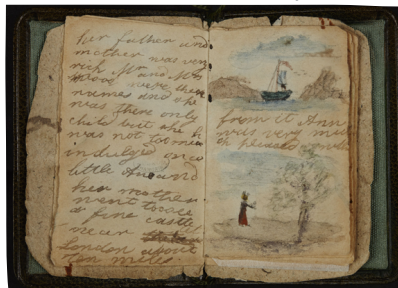 her father and
mother was very
rich Mr and Mrs
Wood were their
names and she
was there only
child but she
was not to me
indulged once
little Ane and
her mother
went to see
a fine castle
near
London about
ten miles
from it Ane
was very mu
ch pleased with